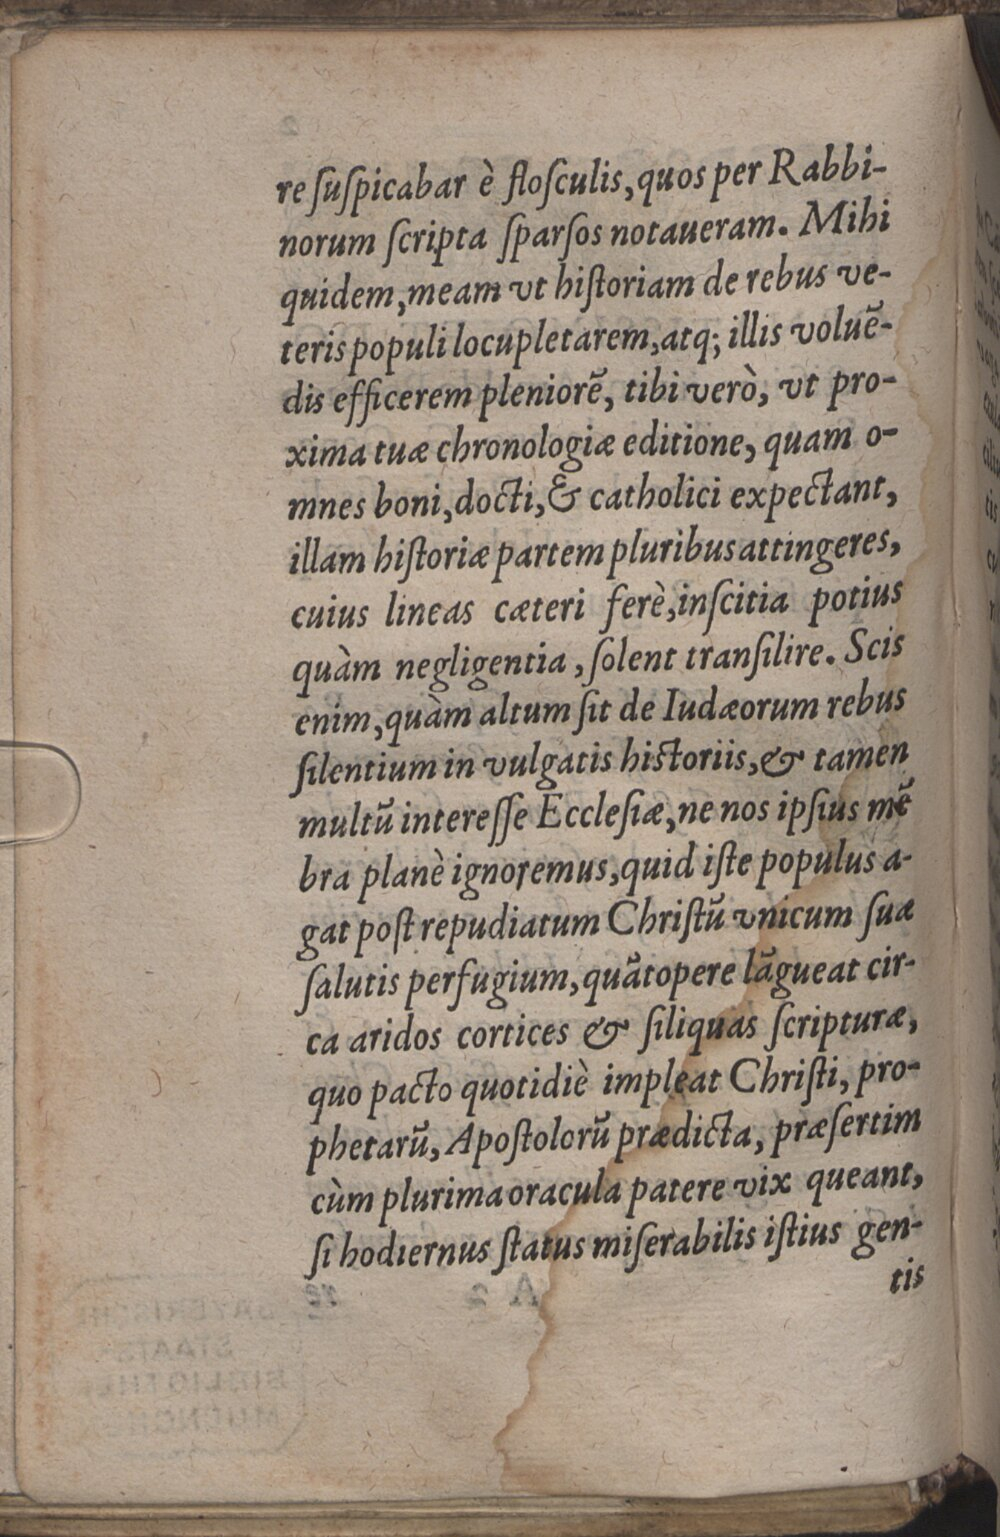 re ſuſpicabar è floſculis, quos per Rabbi-
norum ſcripta ſparſos notaueram. Mihi
quidem, meam vt hiſtoriam de rebus ve-
teris populi locupletarem, atq; illis voluẽ-
dis efficerem pleniorẽ, tibi verò, vt pro-
xima tuæ chronologiæ editione, quam o-
mnes boni, docti, & catholici expectant,
illam hiſtoriæ partem pluribus attingeres,
cuius lineas cæteri ferè, inſcitia potius
quàm negligentia, ſolent tranſilire. Scis
enim, quàm altum ſit de Iudæorum rebus
ſilentium in vulgatis hiſtoriis, & tamen
multũ intereſſe Eccleſiæ, ne nos ipſius mẽ
bra planè ignoremus, quid iſte populus a-
gat poſt repudiatum Chriſtũ vnicum ſuæ
ſalutis perfugium, quãtopere lãgueat cir-
ca aridos cortices & ſiliquas ſcripturæ,
quo pacto quotidiè impleat Chriſti, pro-
phetarũ, Apoſtolorũ prædicta, præſertim
cùm plurima oracula patere vix queant,
ſi hodiernus ſtatus miſerabilis iſtius gen-
tis